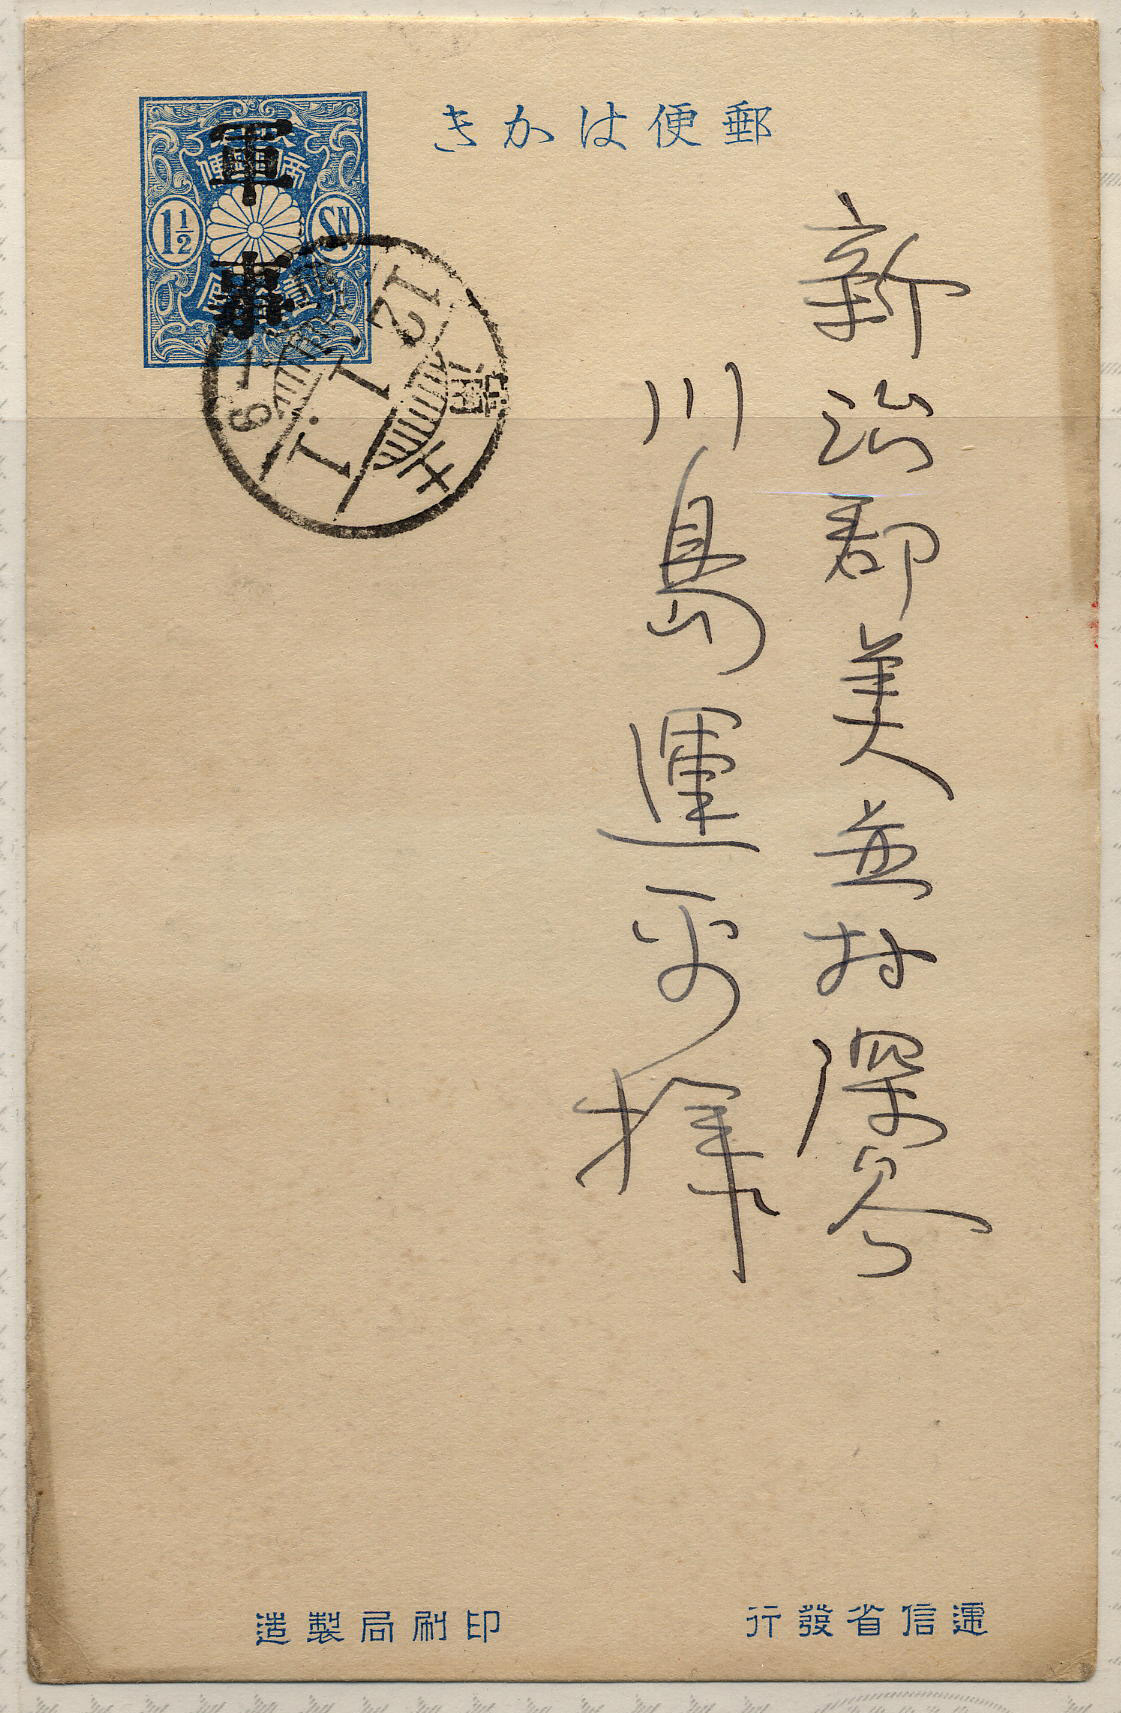 郵便はかき
軍事
1½ SN
12.1.1
新治郡美並村深谷
川島運平様
逓信省發行
印刷局製造